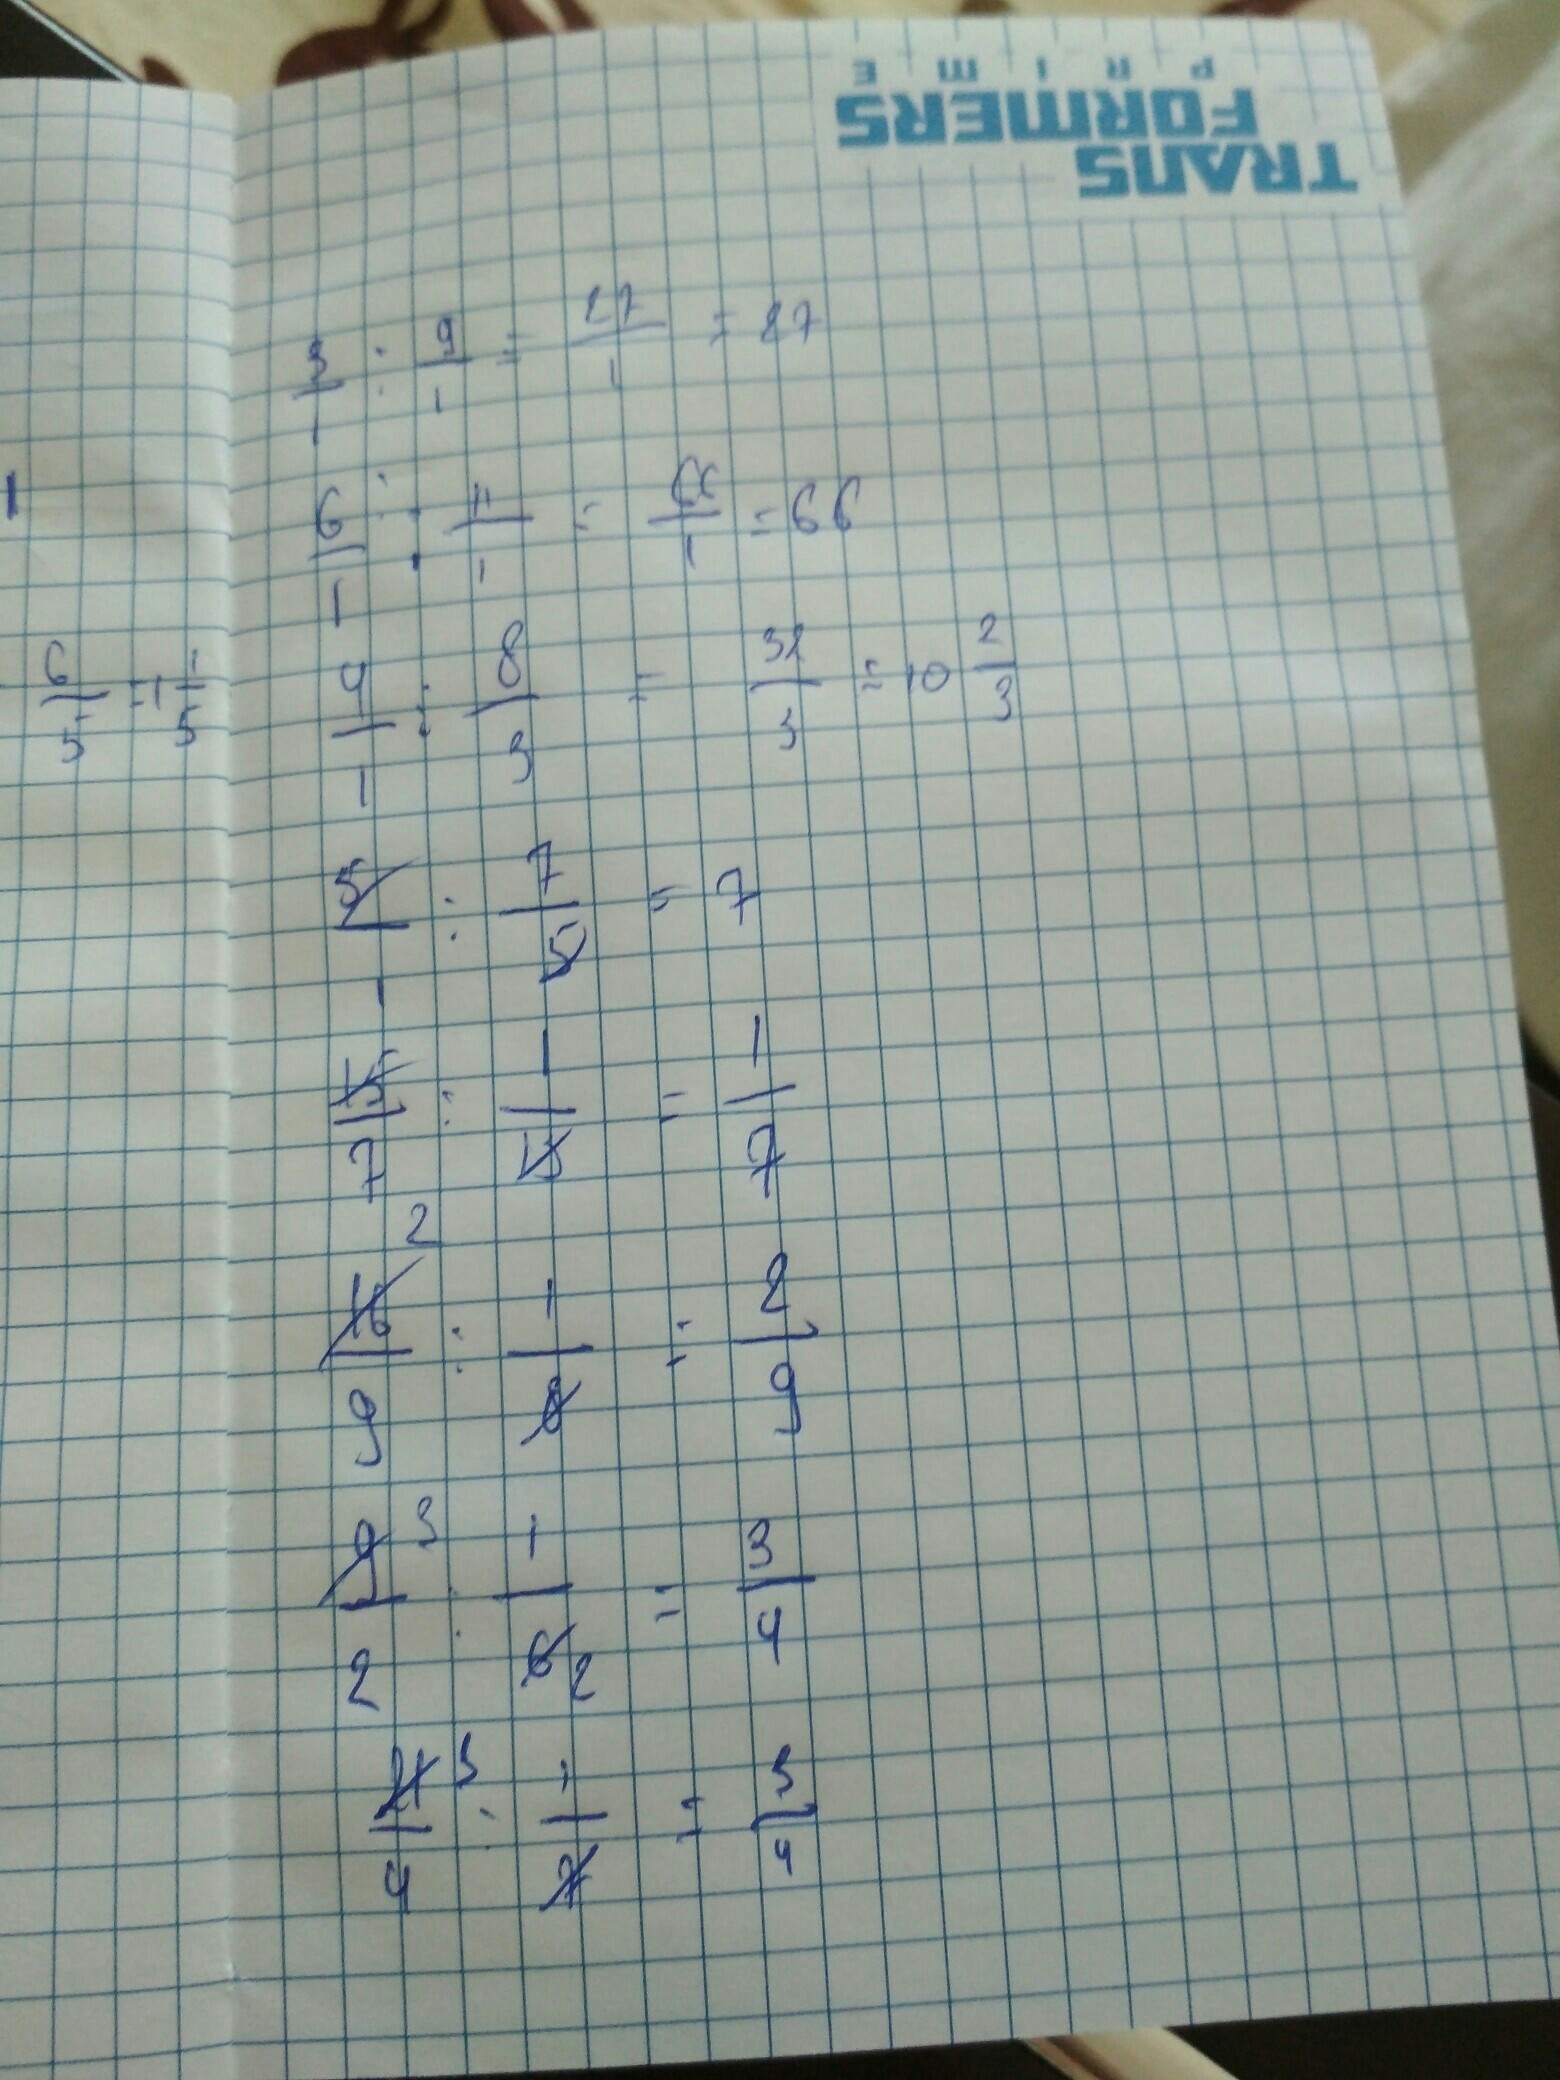 TRANS
FORMERS
PRIME
3/1 : 9/1 = 27/1 = 27
6/1 : 11/1 = 66/1 = 66
6/5 = 1 1/5
4/1 : 8/3 = 32/3 = 10 2/3
5/1 : 7/5 = 7
15/7 : 1/15 = 1/7
2
16/9 : 1/8 = 2/9
9/2 3 : 1/6 2 = 3/4
21/4 3 : 1/7 = 3/4